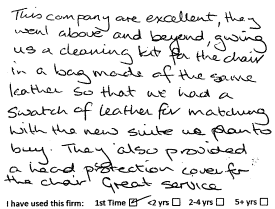 This company are excellent, they
went above and beyond, giving
us a cleaning kit for the chair
in a bag made of the same
leather so that we had a
swatch of leather for matching
with the new suite we plan to
buy. They also provided
a head protection cover for
the chair. Great service
I have used this firm: 1st Time ☑ <2 yrs ☐ 2-4 yrs ☐ 5+ yrs ☐